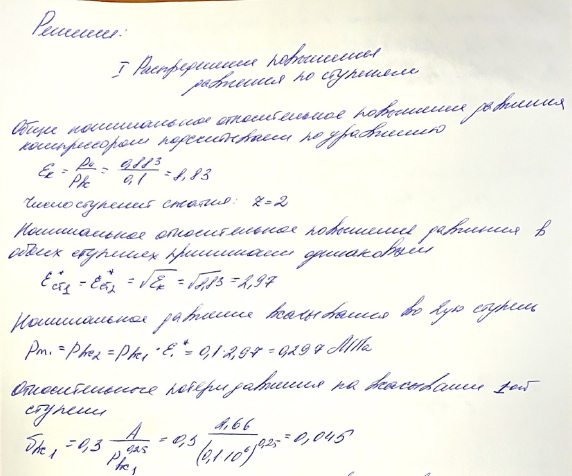 Решение:
I Распределение повышения
давления по ступеням
Общее номинальное относительное повышение давления
компрессором подсчитываем по уравнению
εк = Pн/Pвс = 0,883/0,1 = 8,83
Число ступеней сжатия: z=2
Номинальное относительное повышение давления в
обеих ступенях принимаем одинаковым
ε*ст1 = ε*ст2 = √εк = √8,83 = 2,97
Номинальное давление всасывания во 2ую ступень
Pm1 = Pвс2 = Pвс1 · ε1* = 0,1·2,97 = 0,297 МПа
Относительное потери давления на всасывании 1ой
ступени
δвс1 = 0,3 A/Pвс1^0,25 = 0,3 2,66/(0,1·10⁶)^0,25 = 0,045